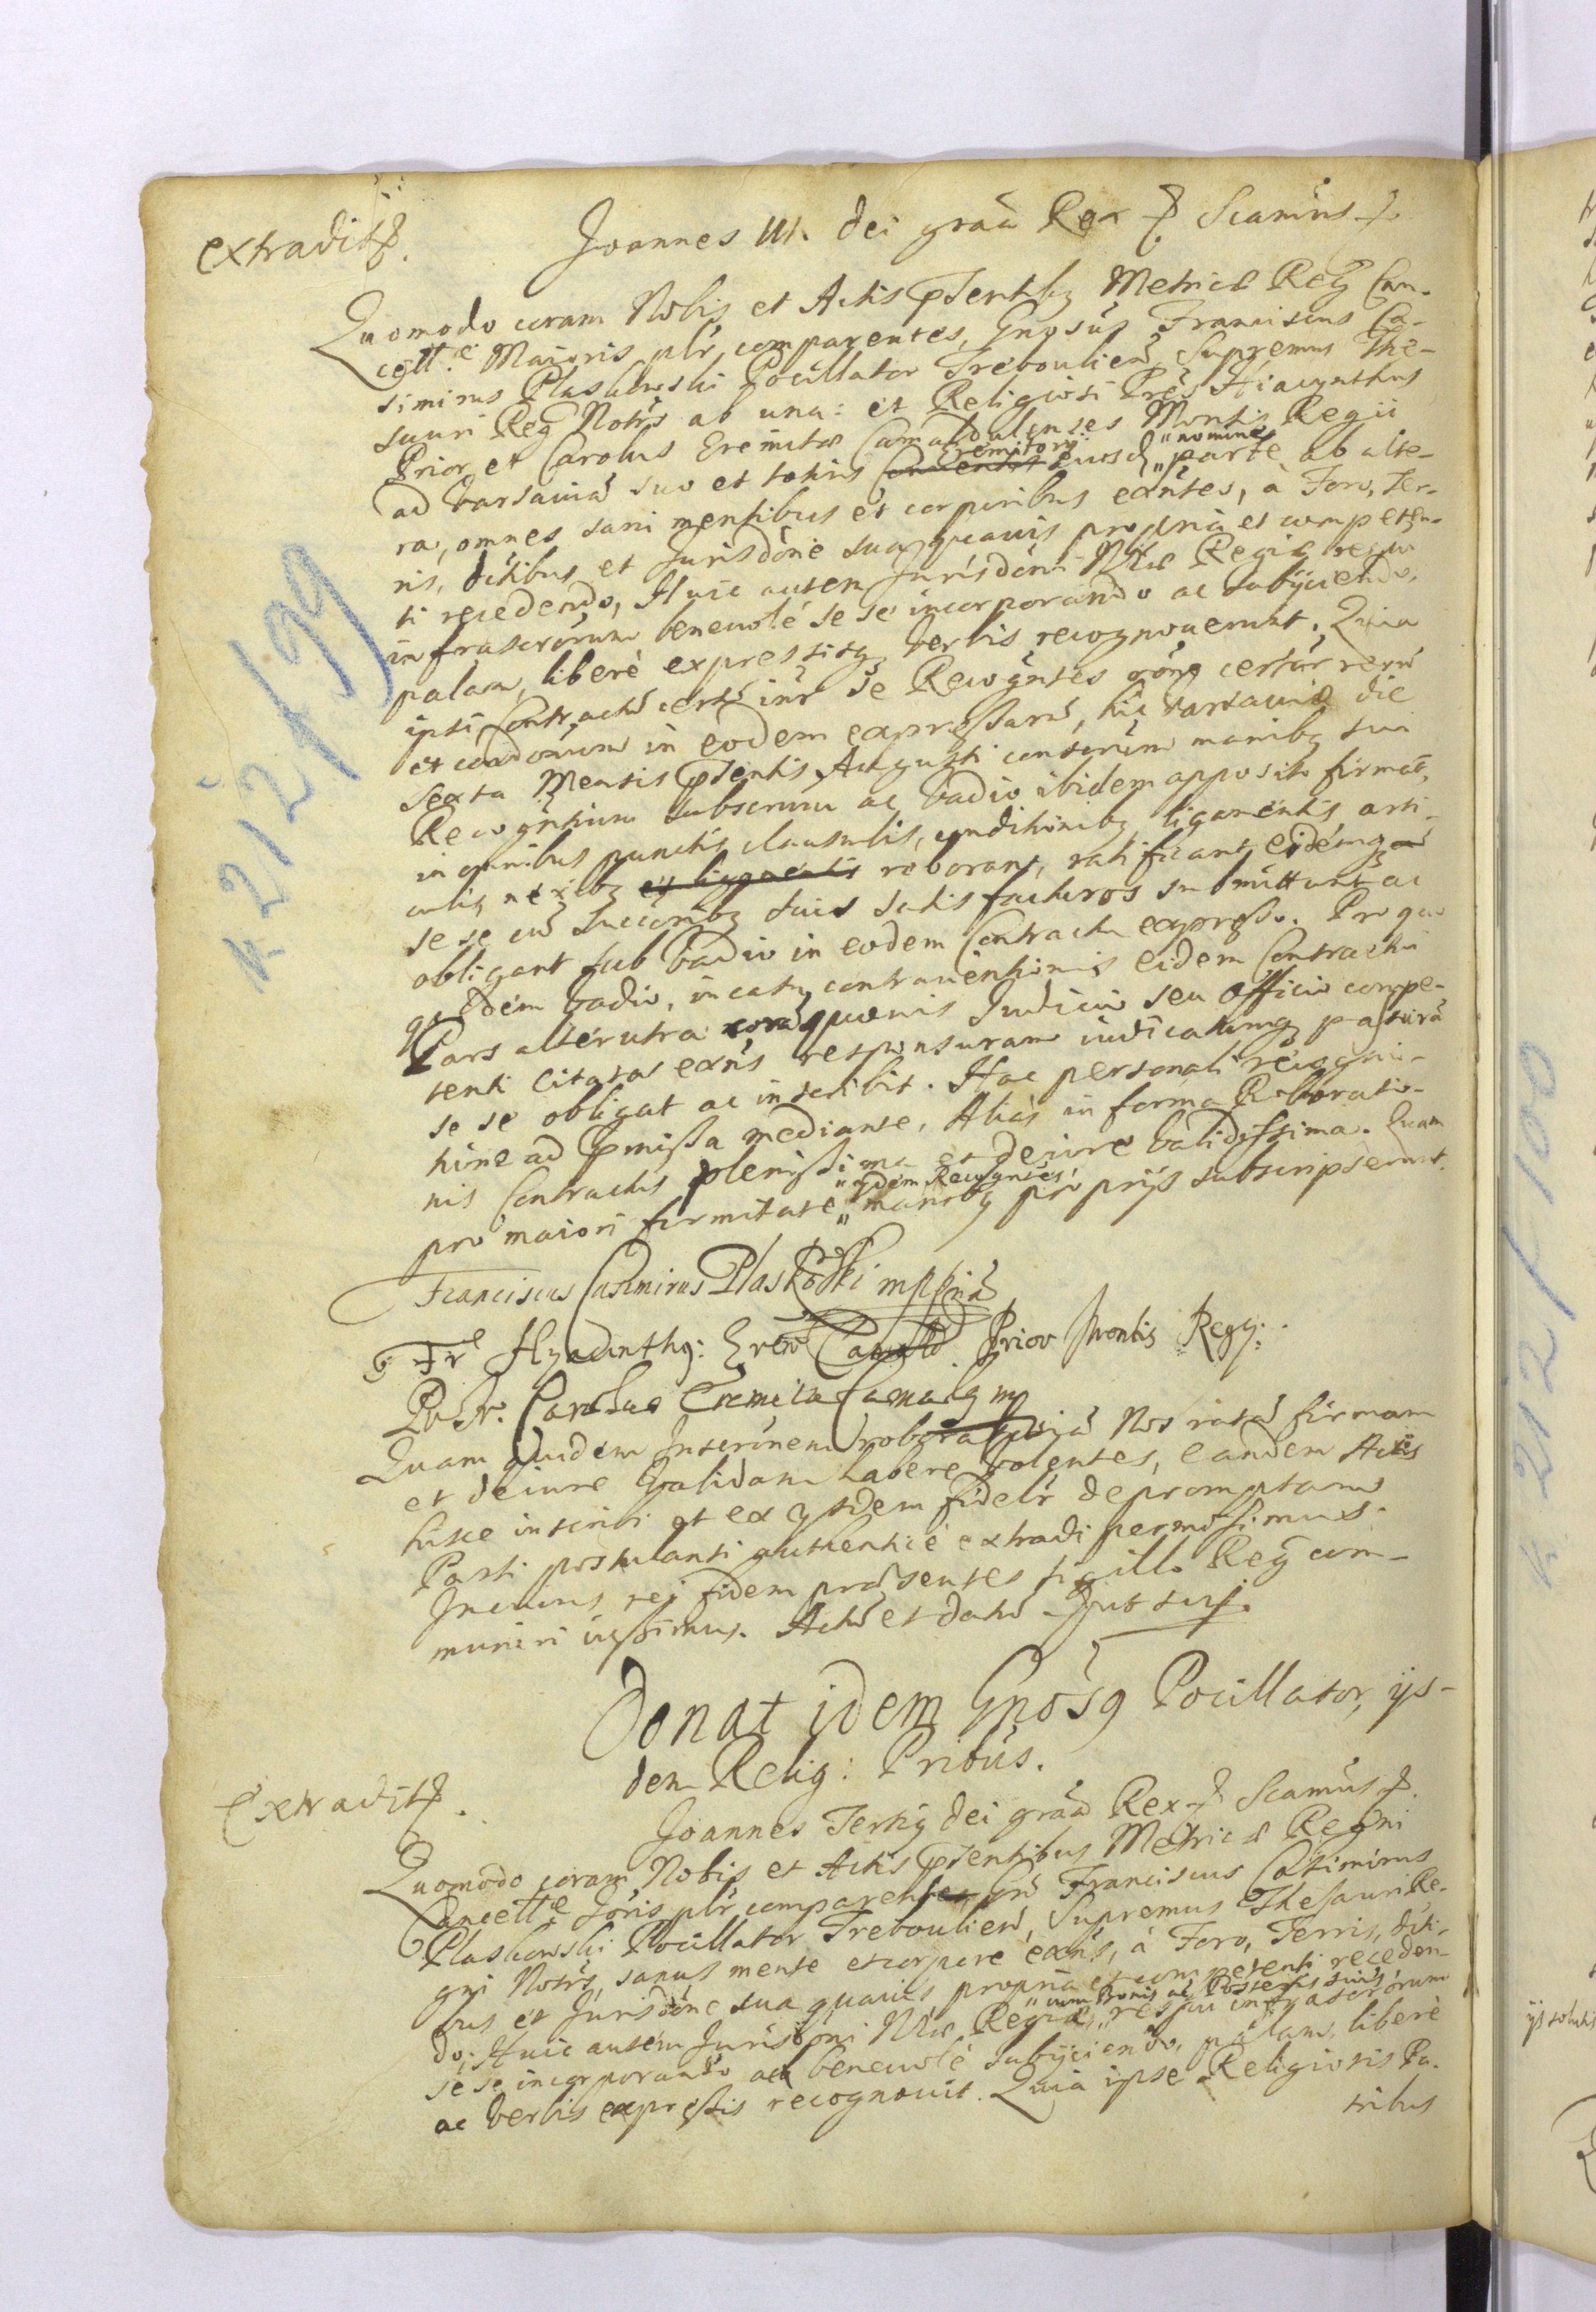 extradit.
Joannes III. dei graã Rex & Scimus &.
Quomodo coram Nobis et Actis pñtibus Metricæ Reg Can-
cellæ Maioris plr comparentes, Gnosus Franciscus Ca-
simirus Plaskowski Pocillator Trebouliens, Supremus The-
sauri Reg Notrs ab una: et Religiosi Pres Hiacynthus
Prior, et Carolus Eremitæ Camaldulenses Montis Regii
ad Varsaviã suo et totius Conventus Eremitorij eiusd „nomine„ parte ab alte-
ra, omnes sani mentibus et corporibus exñtes, à Foro, Ter-
ris, ditibus et Jurisdõne sua quavis propria et competen-
ti recedendo, Huic autem Jurisdõni Nræ Regiæ respu
infrascrõrum benevolé se se incorporando ac subijciendo,
palam, liberè expressisq verbis recognoverunt. Quia
ipsi Contractũ certũ inr se Recogntes rõne certar rerũ
et conditonum in eodem expressarũ, hic Varsaviæ die
Sexta Mensis pñtis Augusti conscrium manibq sui
Recogntium subscrium ac vadio ibidem apposito firmat,
in omnibus punctis, clausulis, conditionibq ligamentis arti-
culis nexibq et ligamentis roborant, ratificant, eidemq
se se cũ Succoribq suis satisfacturos submittunt ac
obligant sub vadio in eodem Contractu expresso. Pro quo
quidem vadio, in casu contraventionis eidem Contractui
Pars alterutra corã quovis Judicio seu Officio compe-
tenti citata exñs responsuram iudicatumq passurã
se se obligat ac inscribit. Hac personali recogni-
tione ad præmissa mediante, Aliàs in forma Roboratio-
nis Contractus plenissima et de iure validissima. Quam
pro maiori firmitate „ijdem Recogntes„ manibq proprijs subscripserunt.
Franciscus Casimirus Plaskowski mppria
Fr Hyacinthq: Erem Camald Prior Montis Regij:
Fr. Carolus Eremita Camal mp
Quam quidem Inscrõnem roboratoriã Nos ratã firmam
et de iure validam habere volentes, eandem Actis
hisce inscribi et ex ijsdem fidelr depromptam
Parti postulanti authenticè extradi permisimus.
In cuius rei fidem præsentes sigillo Reg com-
muniri iussimus. Actũ et datũ ut sup.
Donat idem Gnosq Pocillator, ijs-
dem Relig: Pribus.
Extradit.
Joannes Tertiq dei graã Rex & Scimus &.
Quomodo coram Nobis et Actis pñtibus Metricæ Regni
Cancellæ Joris plr comparens, Gnrs Franciscus Casimirus
Plaskowski Pocillator Trebouliens, Supremus Thesauri Re-
gni Notrs, sanus mente et corpore exñs, à Foro, Terris, diti-
bus et Jurisdõne sua quavis propria et competenti receden-
do; Huic autem Jurisdõni Nræ Regiæ, „cum Bonis ac Posteris suis„ respu infrascrõrum
se se incorporando ac benevolé subijciendo, palam, liberè
ac verbis expressis recognovit. Quia ipse Religiosis Pa-
tribus
K 212 f 99
K 212 f 100